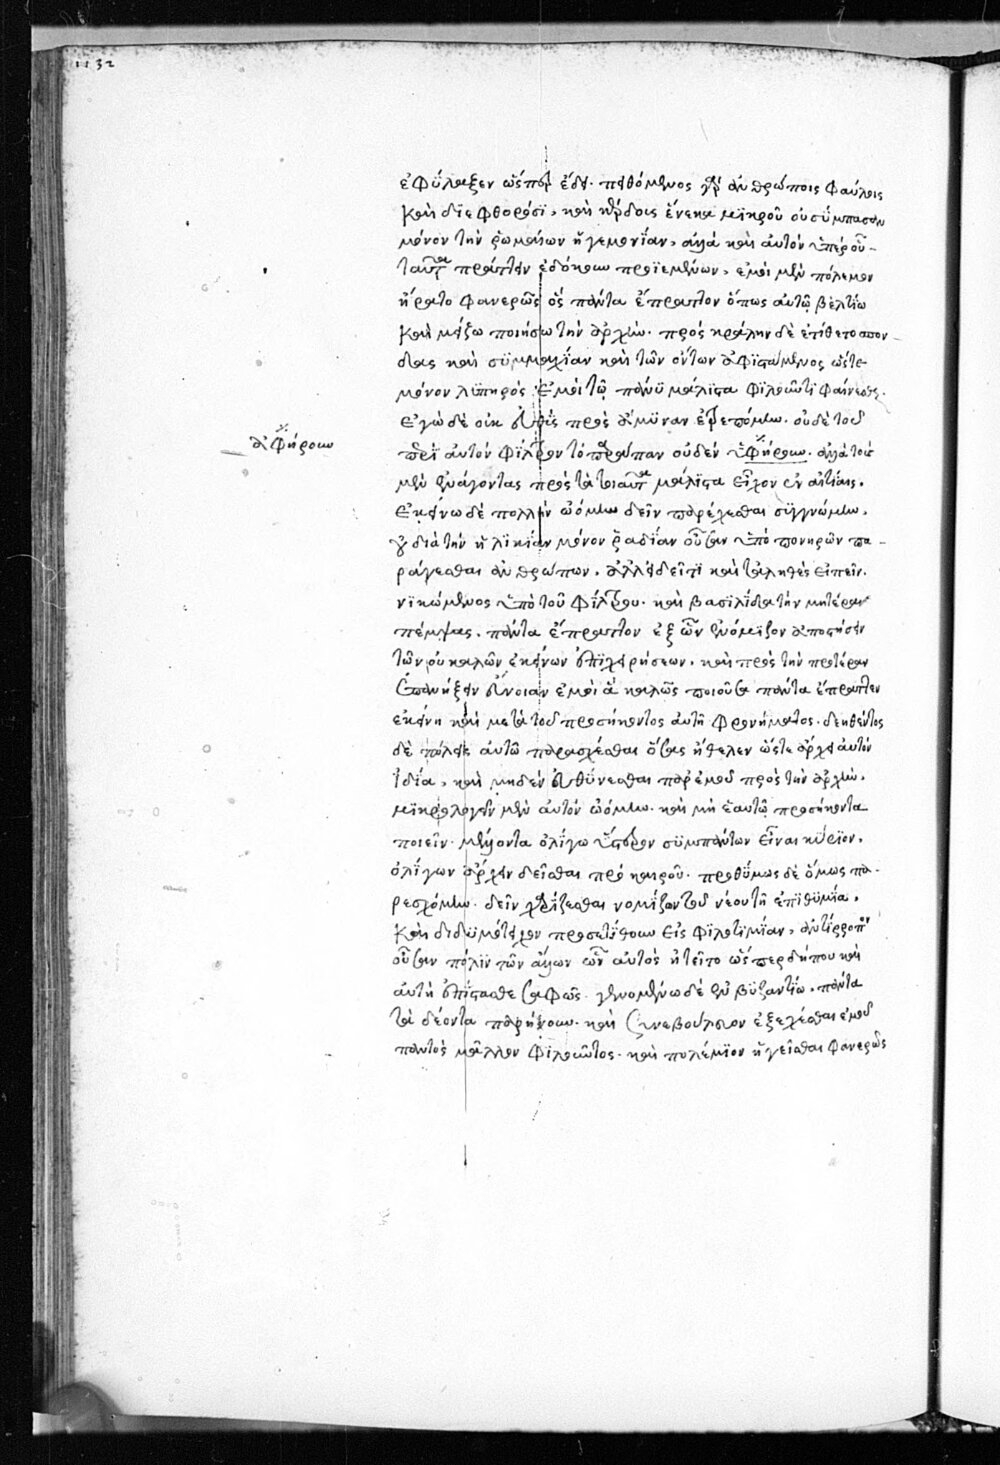 1132
ἐφύλαξεν ὥσπερ ἔδει. πειθόμενος γὰρ ἀνθρώποις φαύλοις
καὶ διεφθορόσι, καὶ κέρδους ἕνεκα μικροῦ οὐ σύμπασαν
μόνον τὴν ῥωμαίων ἡγεμονίαν, ἀλλὰ καὶ αὐτὸν ὑπὲρ οὗ
ταῦτα πράττειν ἐδόκουν προϊεμένων, ἐμοὶ μὲν πόλεμον
ἤρατο φανερῶς ὃς πάντα ἔπραττον ὅπως αὐτῷ βελτίω
καὶ μείζω ποιήσω τὴν ἀρχήν. πρὸς κράλην δὲ ἐτίθετο σπον-
δὰς καὶ συμμαχίαν καὶ τῶν ὄντων ἀφιστάμενος ὥστε
μόνον λυπηρὸς ἐμοὶ τῷ πάνυ μάλιστα φιλοῦντι φαίνεσθαι.
ἐγὼ δὲ οὐκ εὐθὺς πρὸς ἄμυναν ἐτρεπόμην. οὐδὲ τοῦ
περὶ αὐτὸν φίλτρου τὸ παράπαν οὐδὲν ὑφήρουν. ἀλλὰ τοὺς
ἀφήρουν
μὲν ἐνάγοντας πρὸς τὰ τοιαῦτα μάλιστα εἶχον ἐν αἰτίαις.
ἐκείνῳ δὲ πολλὴν ᾠόμην δεῖν παρέχεσθαι συγγνώμην.
οὐ διὰ τὴν ἡλικίαν μόνον ῥᾳδίαν οὖσαν ὑπὸ πονηρῶν πα-
ράγεσθαι ἀνθρώπων, ἀλλ' εἰ δεῖ τι καὶ τἀληθὲς εἰπεῖν.
νικώμενος ὑπὸ τοῦ φίλτρου. καὶ βασιλίδα τὴν μητέρα
πέμψας. πάντα ἔπραττον ἐξ ὧν ἐνόμιζον ἀποστήσειν
τῶν οὐ καλῶν ἐκείνων ἐπιχειρήσεων. καὶ πρὸς τὴν προτέραν
ἐπανήξειν εὔνοιαν ἐμοὶ ἃ καλῶς ποιοῦσα πάντα ἔπραττεν
ἐκείνη καὶ μετὰ τοῦ προσήκοντος αὐτῇ φρονήματος. δεηθέντος
δὲ πόλεις αὐτῷ παρασχέσθαι ὅσας ἤθελεν ὥστε ἄρχειν αὐτὸν
ἰδίᾳ, καὶ μηδὲν εὐθύνεσθαι παρ' ἐμοῦ πρὸς τὴν ἀρχήν.
μικρολογεῖν μὲν αὐτὸν ᾠόμην. καὶ μὴ ἑαυτῷ προσήκοντα
ποιεῖν. μέλλοντα ὀλίγῳ ὕστερον συμπάντων εἶναι κύριον.
ὀλίγων ἄρχειν δεῖσθαι πρὸ καιροῦ. προθύμως δὲ ὅμως πα-
ρεσχόμην. δεῖν χαρίζεσθαι νομίζων τοῦ νέου τῇ ἐπιθυμίᾳ.
καὶ διδυμότειχον προσετίθουν εἰς φιλοτιμίαν, ἀντίρροπον
οὖσαν πόλιν τῶν ἄλλων ὧν αὐτὸς ᾐτεῖτο ὥσπερ δήπου καὶ
αὐτὴ ἐπίστασθε σαφῶς. γενομένῳ δὲ ἐν βυζαντίῳ, πάντα
τὰ δέοντα παρῄνουν. καὶ συνεβούλευον ἐξέχεσθαι ἐμοῦ
παντὸς μᾶλλον φιλοῦντος. καὶ πολέμιον ἡγεῖσθαι φανερῶς